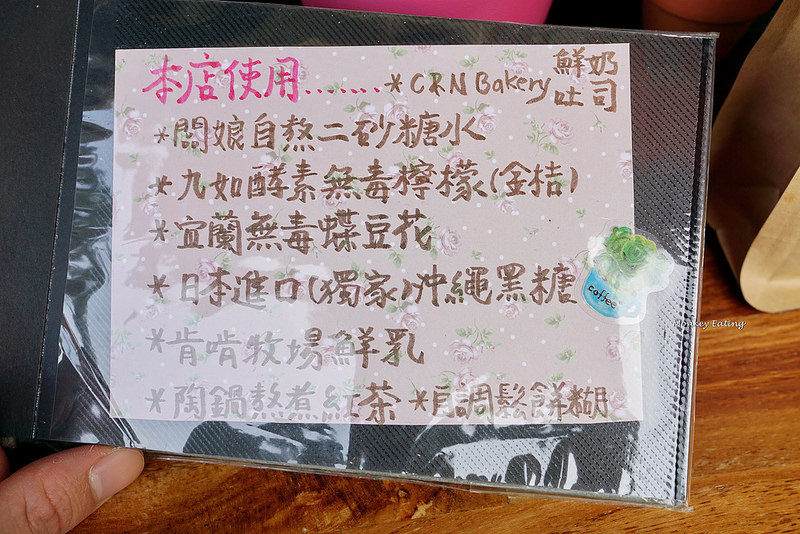 本店使用........*CRN Bakery鮮奶吐司
*闆娘自熬二砂糖水
*九如酵素無毒檸檬(金桔)
*宜蘭無毒蝶豆花
*日本進口(獨家)沖繩黑糖
*肯啃牧場鮮乳
*陶鍋熬煮紅茶 *自調鬆餅糊
coffee
Monkey Eating